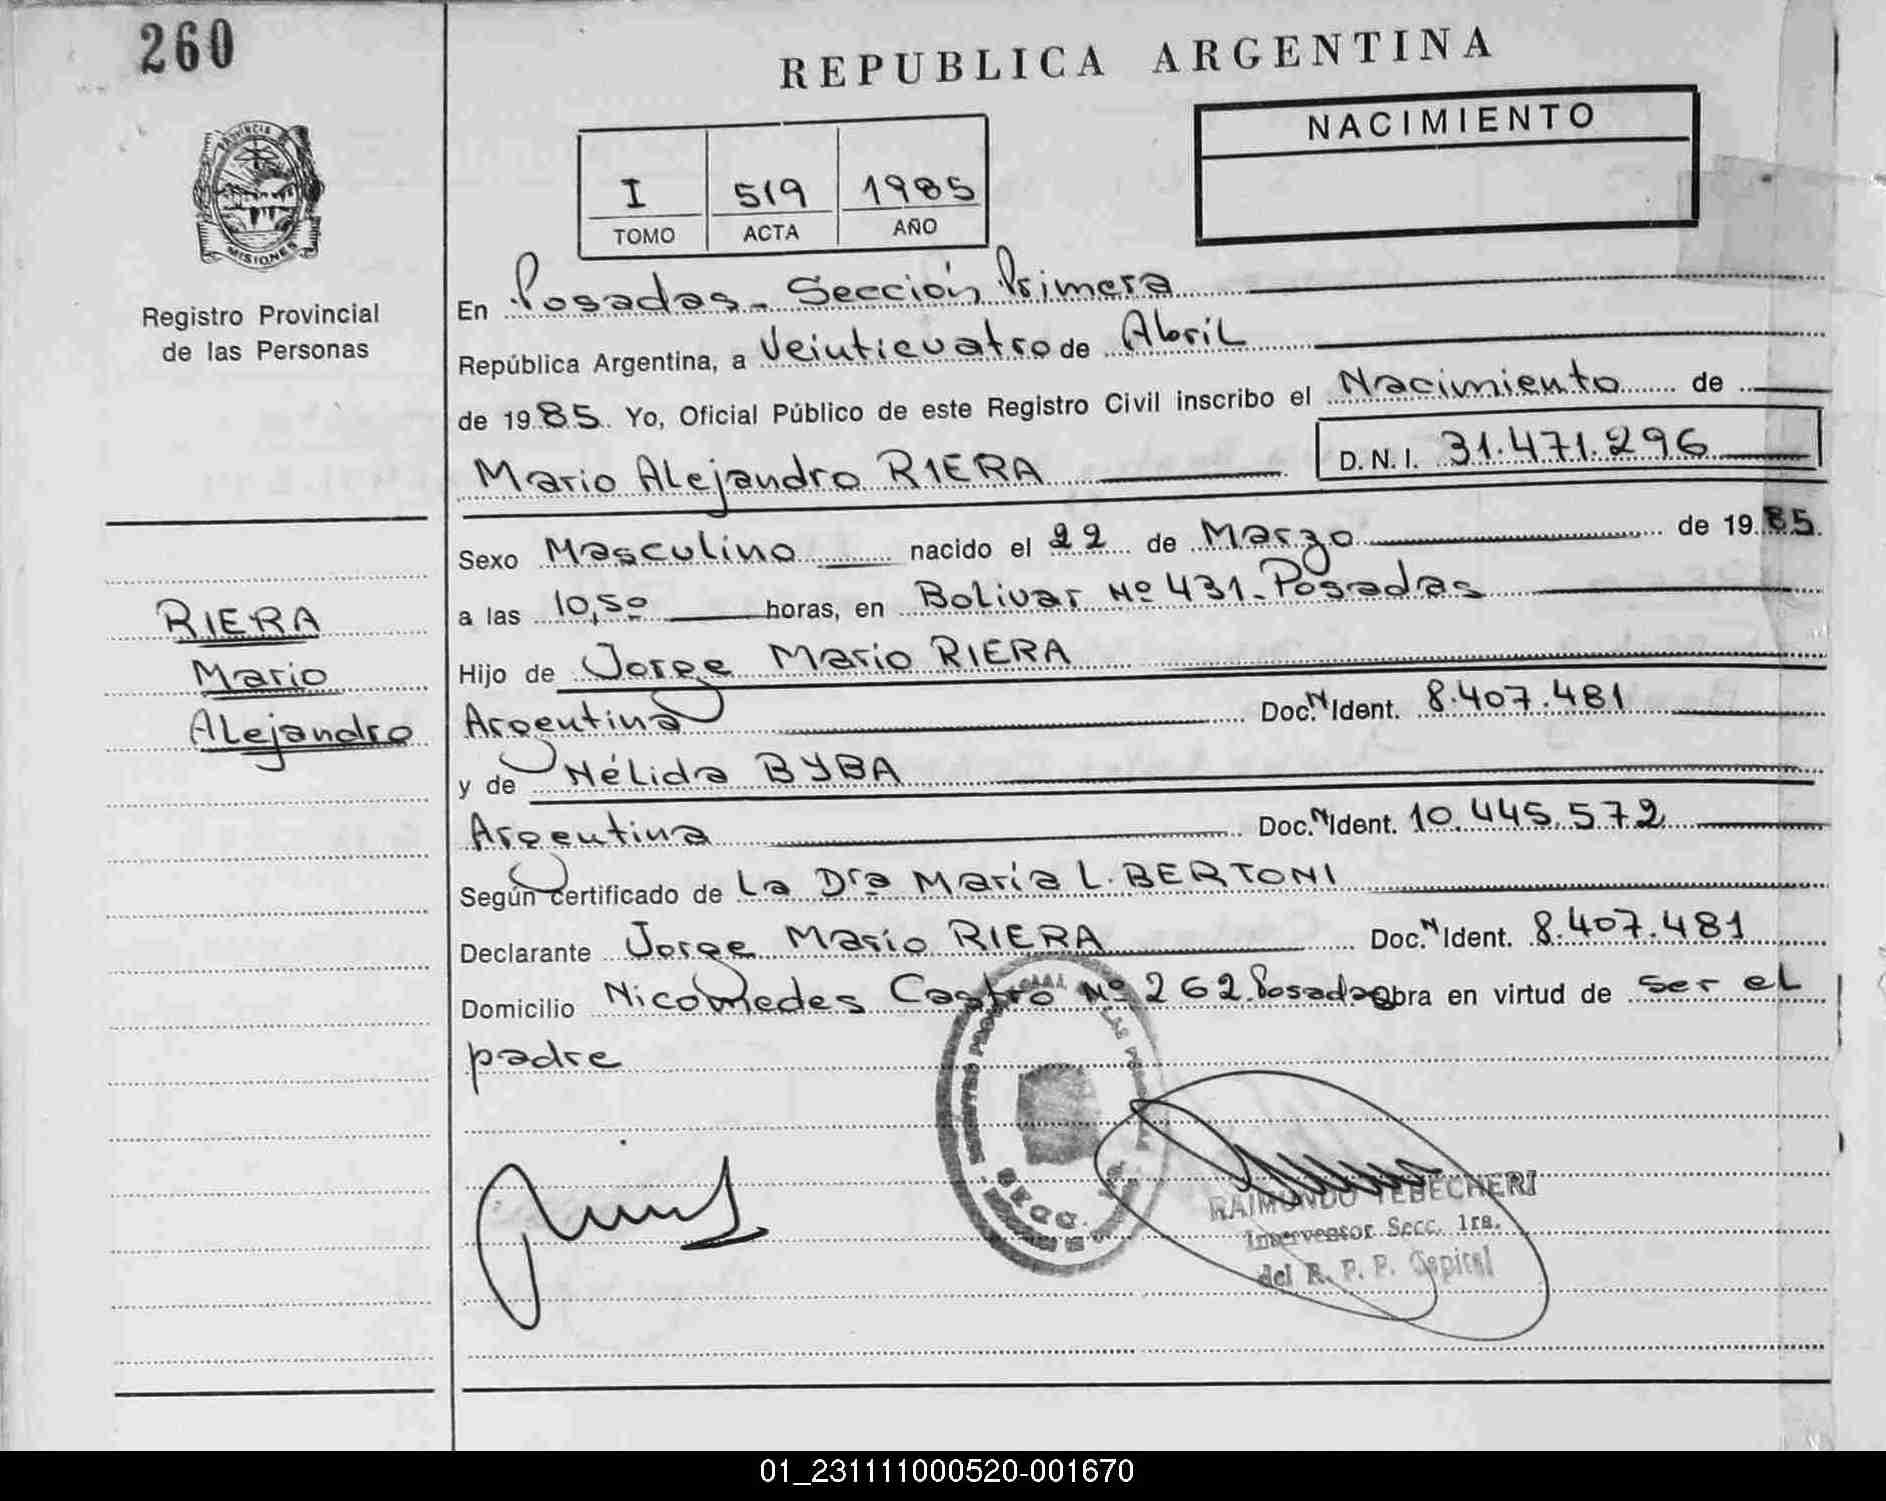 260
REPUBLICA ARGENTINA
NACIMIENTO
I 519 1985
TOMO ACTA AÑO
PROVINCIA DE
MISIONES
Registro Provincial
de las Personas
En Posadas - Sección Primera
República Argentina, a Veinticuatro de Abril
de 1985. Yo, Oficial Público de este Registro Civil inscribo el Nacimiento de
Mario Alejandro RIERA D.N.I. 31.471.296
Sexo Masculino nacido el 22 de Marzo de 1985.
a las 10,50 horas, en Bolivar Nº 431 - Posadas
Hijo de Jorge Mario RIERA
Argentina Doc. N Ident. 8.407.481
y de Nélida BYBA
Argentina Doc. N Ident. 10.445.572
Según certificado de La Dra María L. BERTONI
Declarante Jorge Mario RIERA Doc. N Ident. 8.407.481
Domicilio Nicomedes Castro Nº 262 Posadas obra en virtud de ser el
padre
RIERA
Mario
Alejandro
SECC.
RAIMUNDO TEBECHERI
Interventor Secc. 1ra.
del R. P. P. Capital
01_231111000520-001670